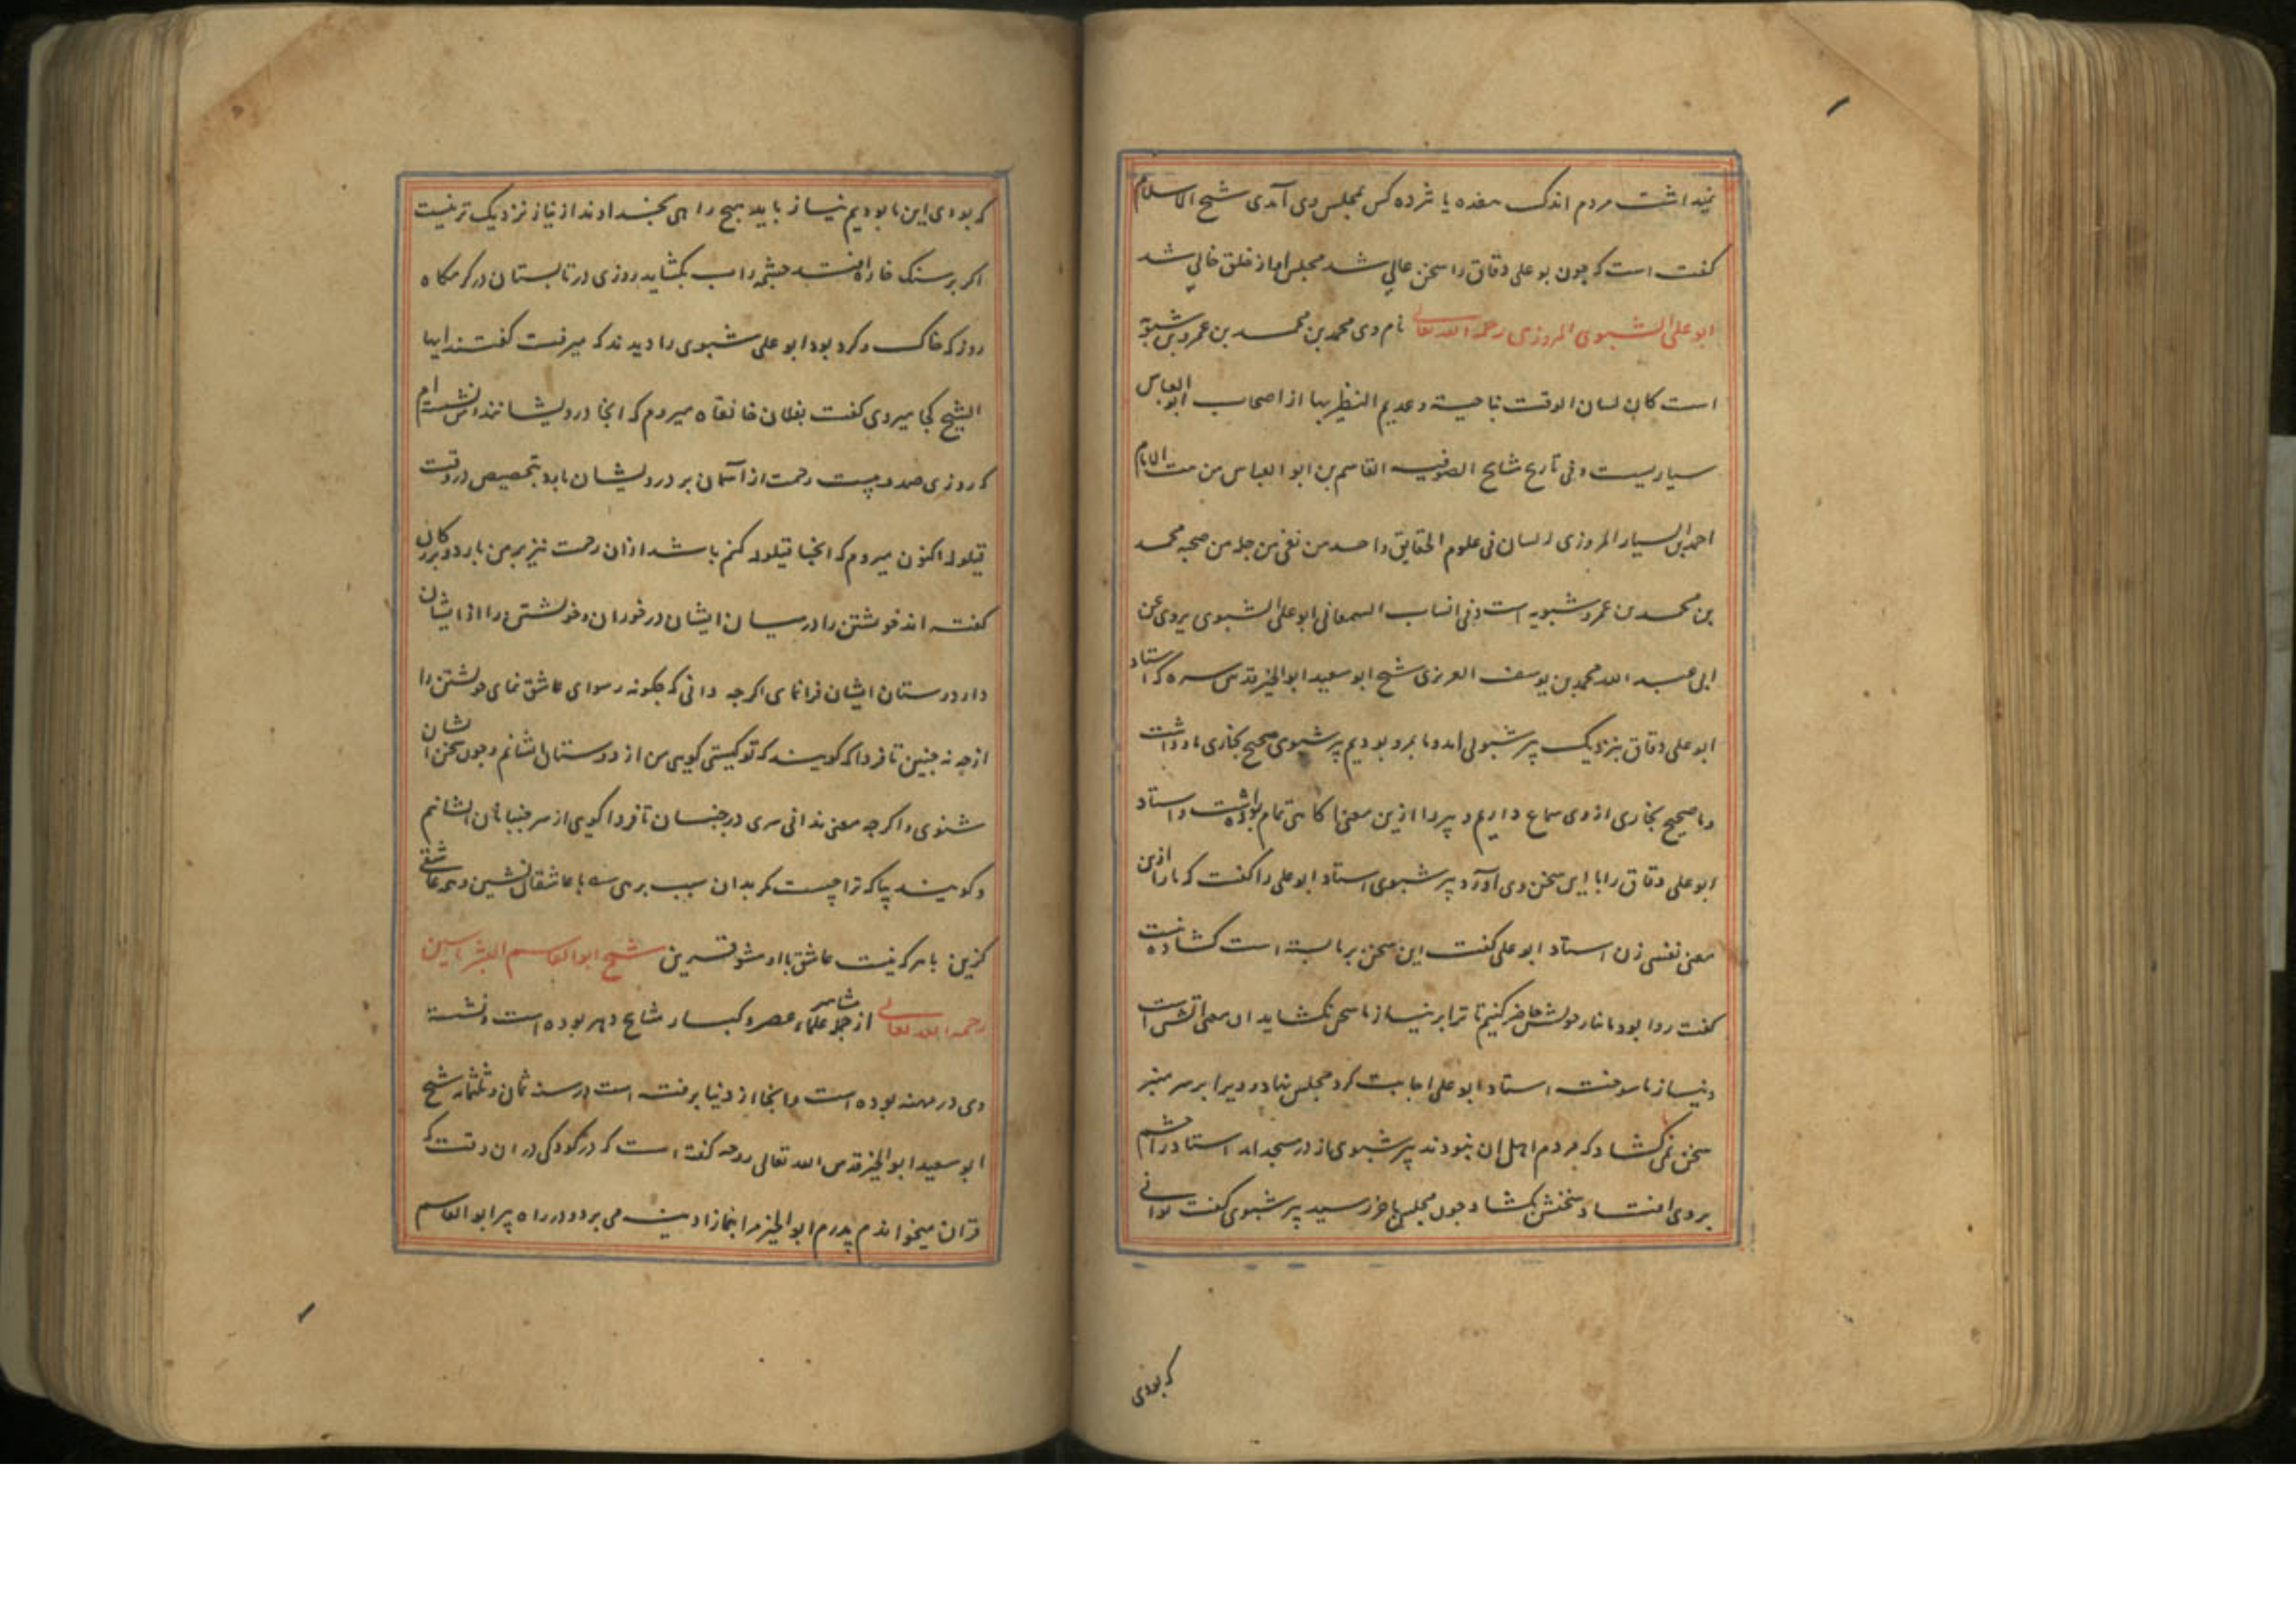 نمیداشت مردم اندک هفده یا هژده کس بمجلس وی آمدی شیخ الاسلام
گفت است که چون بو علی دقاق را سخن عالی شد مجلس او از خلق خالی شد
ابو علی الشبوی المروزی رحمه الله تعالی نام وی محمد بن محمد بن عمرو بن شبویه
است کان لسان الوقت بناحیته وعدیم النظر بها از اصحاب ابو العباس
سیاریست وفی تاریخ مشایخ الصوفیه القاسم بن ابو العباس من بنت الامام
احمد بن السیار المروزی لسان فی علوم الحقایق واحد من نفی من جله من صحبه محمد
بن محمد بن عمرو شبویه است وفی انساب السمعانی ابو علی الشبوی یروی عن
ابی عبد الله محمد بن یوسف العزیزی شیخ ابو سعید ابو الخیر قدس سره که استاد
ابو علی دقاق بنزدیک پیر شبوی امد وما بمرو بودیم پیر شبوی صحیح بخاری یاد داشت
وما صحیح بخاری از وی سماع داریم و پیر را ازین معنی اکاهی تمام بوده است و استاد
ابو علی دقاق را با این سخن وی آورد پیر شبوی استاد ابو علی را گفت که ما را ازین
معنی نفسی زن استاد ابو علی گفت این سخن بر ما بسته است گشاده نیست
گفت روا بود ما نیاز خویش حاضر کنیم تا ترا بر نیاز ما سخن بگشاید ان معنی اتش است
ونیاز ما سوخت استاد ابو علی اجابت کرد مجلس نهادو ویرا بر سر منبر
سخن نمی کشاد که مردم اهل ان نبودند پیر شبوی از در مسجد امد استاد را چشم
بر وی افتاد و سخنش بگشاد چون مجلس باخر رسید پیر شبوی گفت توانی
که بودی
که بودی این ما بودیم نیاز باید هیچ راهی بخداوند از نیاز نزدیک تر نیست
اکر بر سنک خاره افتد چشمه راب بکشاید روزی در تابستان در کرمکاه
روز که خاک و کرد بود ابو علی شبوی را دیدند که میرفت کفتند ایها
الشیخ کجا میروی کفت بفلان خانقاه میروم که انجا درویشانند من شنیده ام
که روزی صد و بیست رحمت از آسمان بر درویشان بارد بتخصیص در وقت
قیلوله اکنون میروم که انجا قیلوله کنم باشد از ان رحمت نیز بر من بارد و بزرکان
کفته اند خویشتن را در میان ایشان در خوران و خویشتن را از ایشان
دار دوستان ایشان فرا نمای اکرچه دانی که چکونه رسوای عاشق نمای خویشتن را
ازچه نه چنین تا فردا که کویند که تو کیستی کویی من از دوستان ایشانم وچون سخن ایشان
شنوی واکرچه معنی ندانی سری در جنبان تا فردا کویی از سر جنبانان ایشانم
وکویند پیا که ترا چیست مکر بدان سبب برهی با عاشقان نشین وهمه عاشقی
کزین با هر که نیست عاشق با او مشو قرین شیخ ابو القاسم البشر یاسین
رحمه الله تعالی از جمله مشاهیر علماء عصر وکبار مشایخ دهر بوده است و نشسته
وی در مهنه بوده است وبانجا از دنیا برفته است در سنه ثمان وثلثمایه شیخ
ابو سعید ابو الخیر قدس الله تعالی روحه کفته است که در کودکی در ان وقت که
قران میخواندم پدرم ابو الخیر مرا بنماز ادینه می برد در راه پیر ابو القاسم